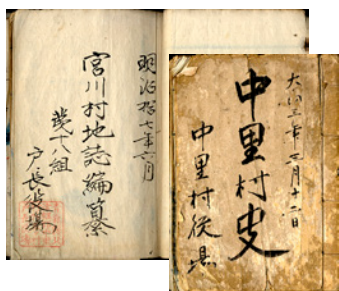 明治拾七年六月
宮川村地誌編纂
八組
戸長役場
大正三年三月十二日
中里村史
中里村役場